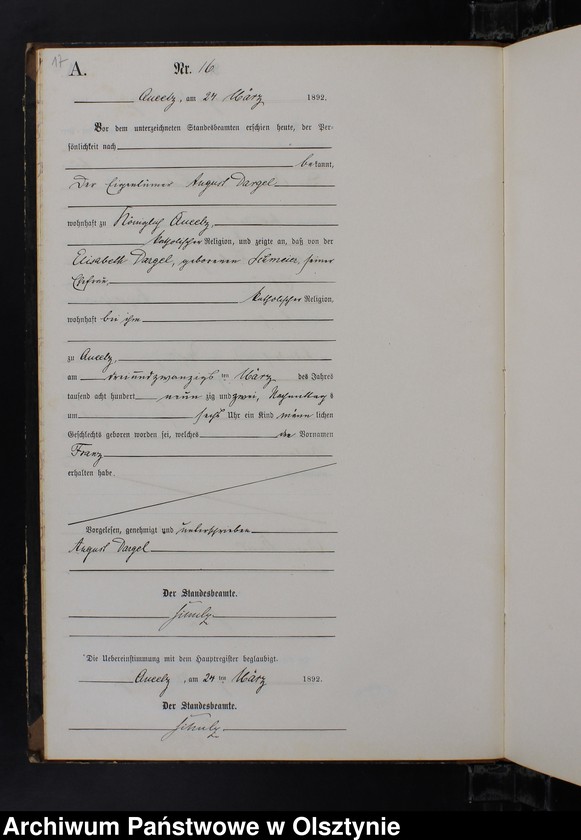 17
A. Nr. 16
am 24 März 1892.
Vor dem unterzeichneten Standesbeamten erschien heute, der Per-
sönlichkeit nach
bekannt,
Der Eigentümer August Dargel
wohnhaft zu Königlich
katholischer Religion, und zeigte an, daß von der
Elisabeth Dargel, geborenen seiner
Ehefrau,
katholischer Religion,
wohnhaft bei ihm
zu
am dreiundzwanzigsten März des Jahres
tausend acht hundert neunzig und zwei, Nachmittags
um sechs Uhr ein Kind männlichen
Geschlechts geboren worden sei, welches die Vornamen
Franz
erhalten habe.
Vorgelesen, genehmigt und unterschrieben
August Dargel
Der Standesbeamte.
Schulz
Die Uebereinstimmung mit dem Hauptregister beglaubigt.
am 24 ten März 1892.
Der Standesbeamte.
Schulz
Archiwum Państwowe w Olsztynie